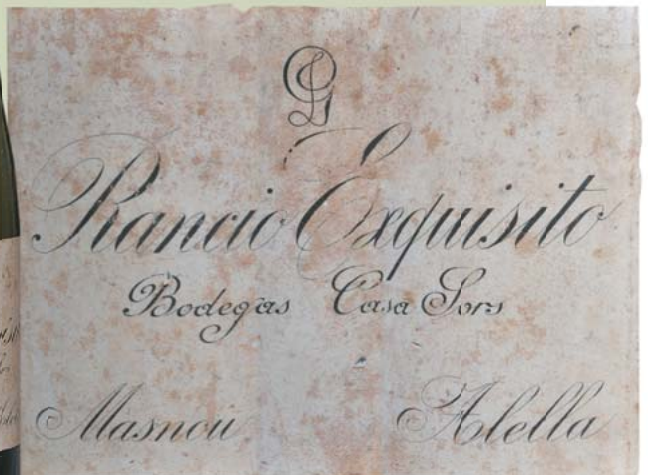 Rancio Exquisito
Bodegas Casa Sors
Masnou Alella